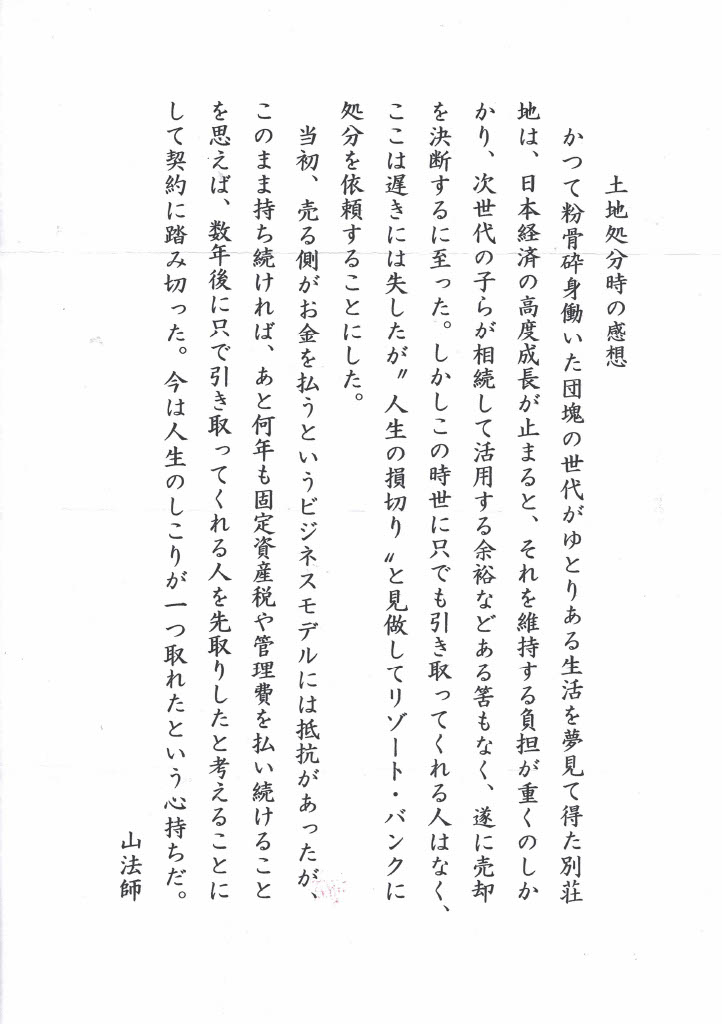 土地処分時の感想
かつて粉骨砕身働いた団塊の世代がゆとりある生活を夢見て得た別荘
地は、日本経済の高度成長が止まると、それを維持する負担が重くのしか
かり、次世代の子らが相続して活用する余裕などある筈もなく、遂に売却
を決断するに至った。しかしこの時世に只でも引き取ってくれる人はなく、
ここは遅きには失したが〃人生の損切り〃と見做してリゾート・バンクに
処分を依頼することにした。
当初、売る側がお金を払うというビジネスモデルには抵抗があったが、
このまま持ち続ければ、あと何年も固定資産税や管理費を払い続けること
を思えば、数年後に只で引き取ってくれる人を先取りしたと考えることに
して契約に踏み切った。今は人生のしこりが一つ取れたという心持ちだ。
山法師